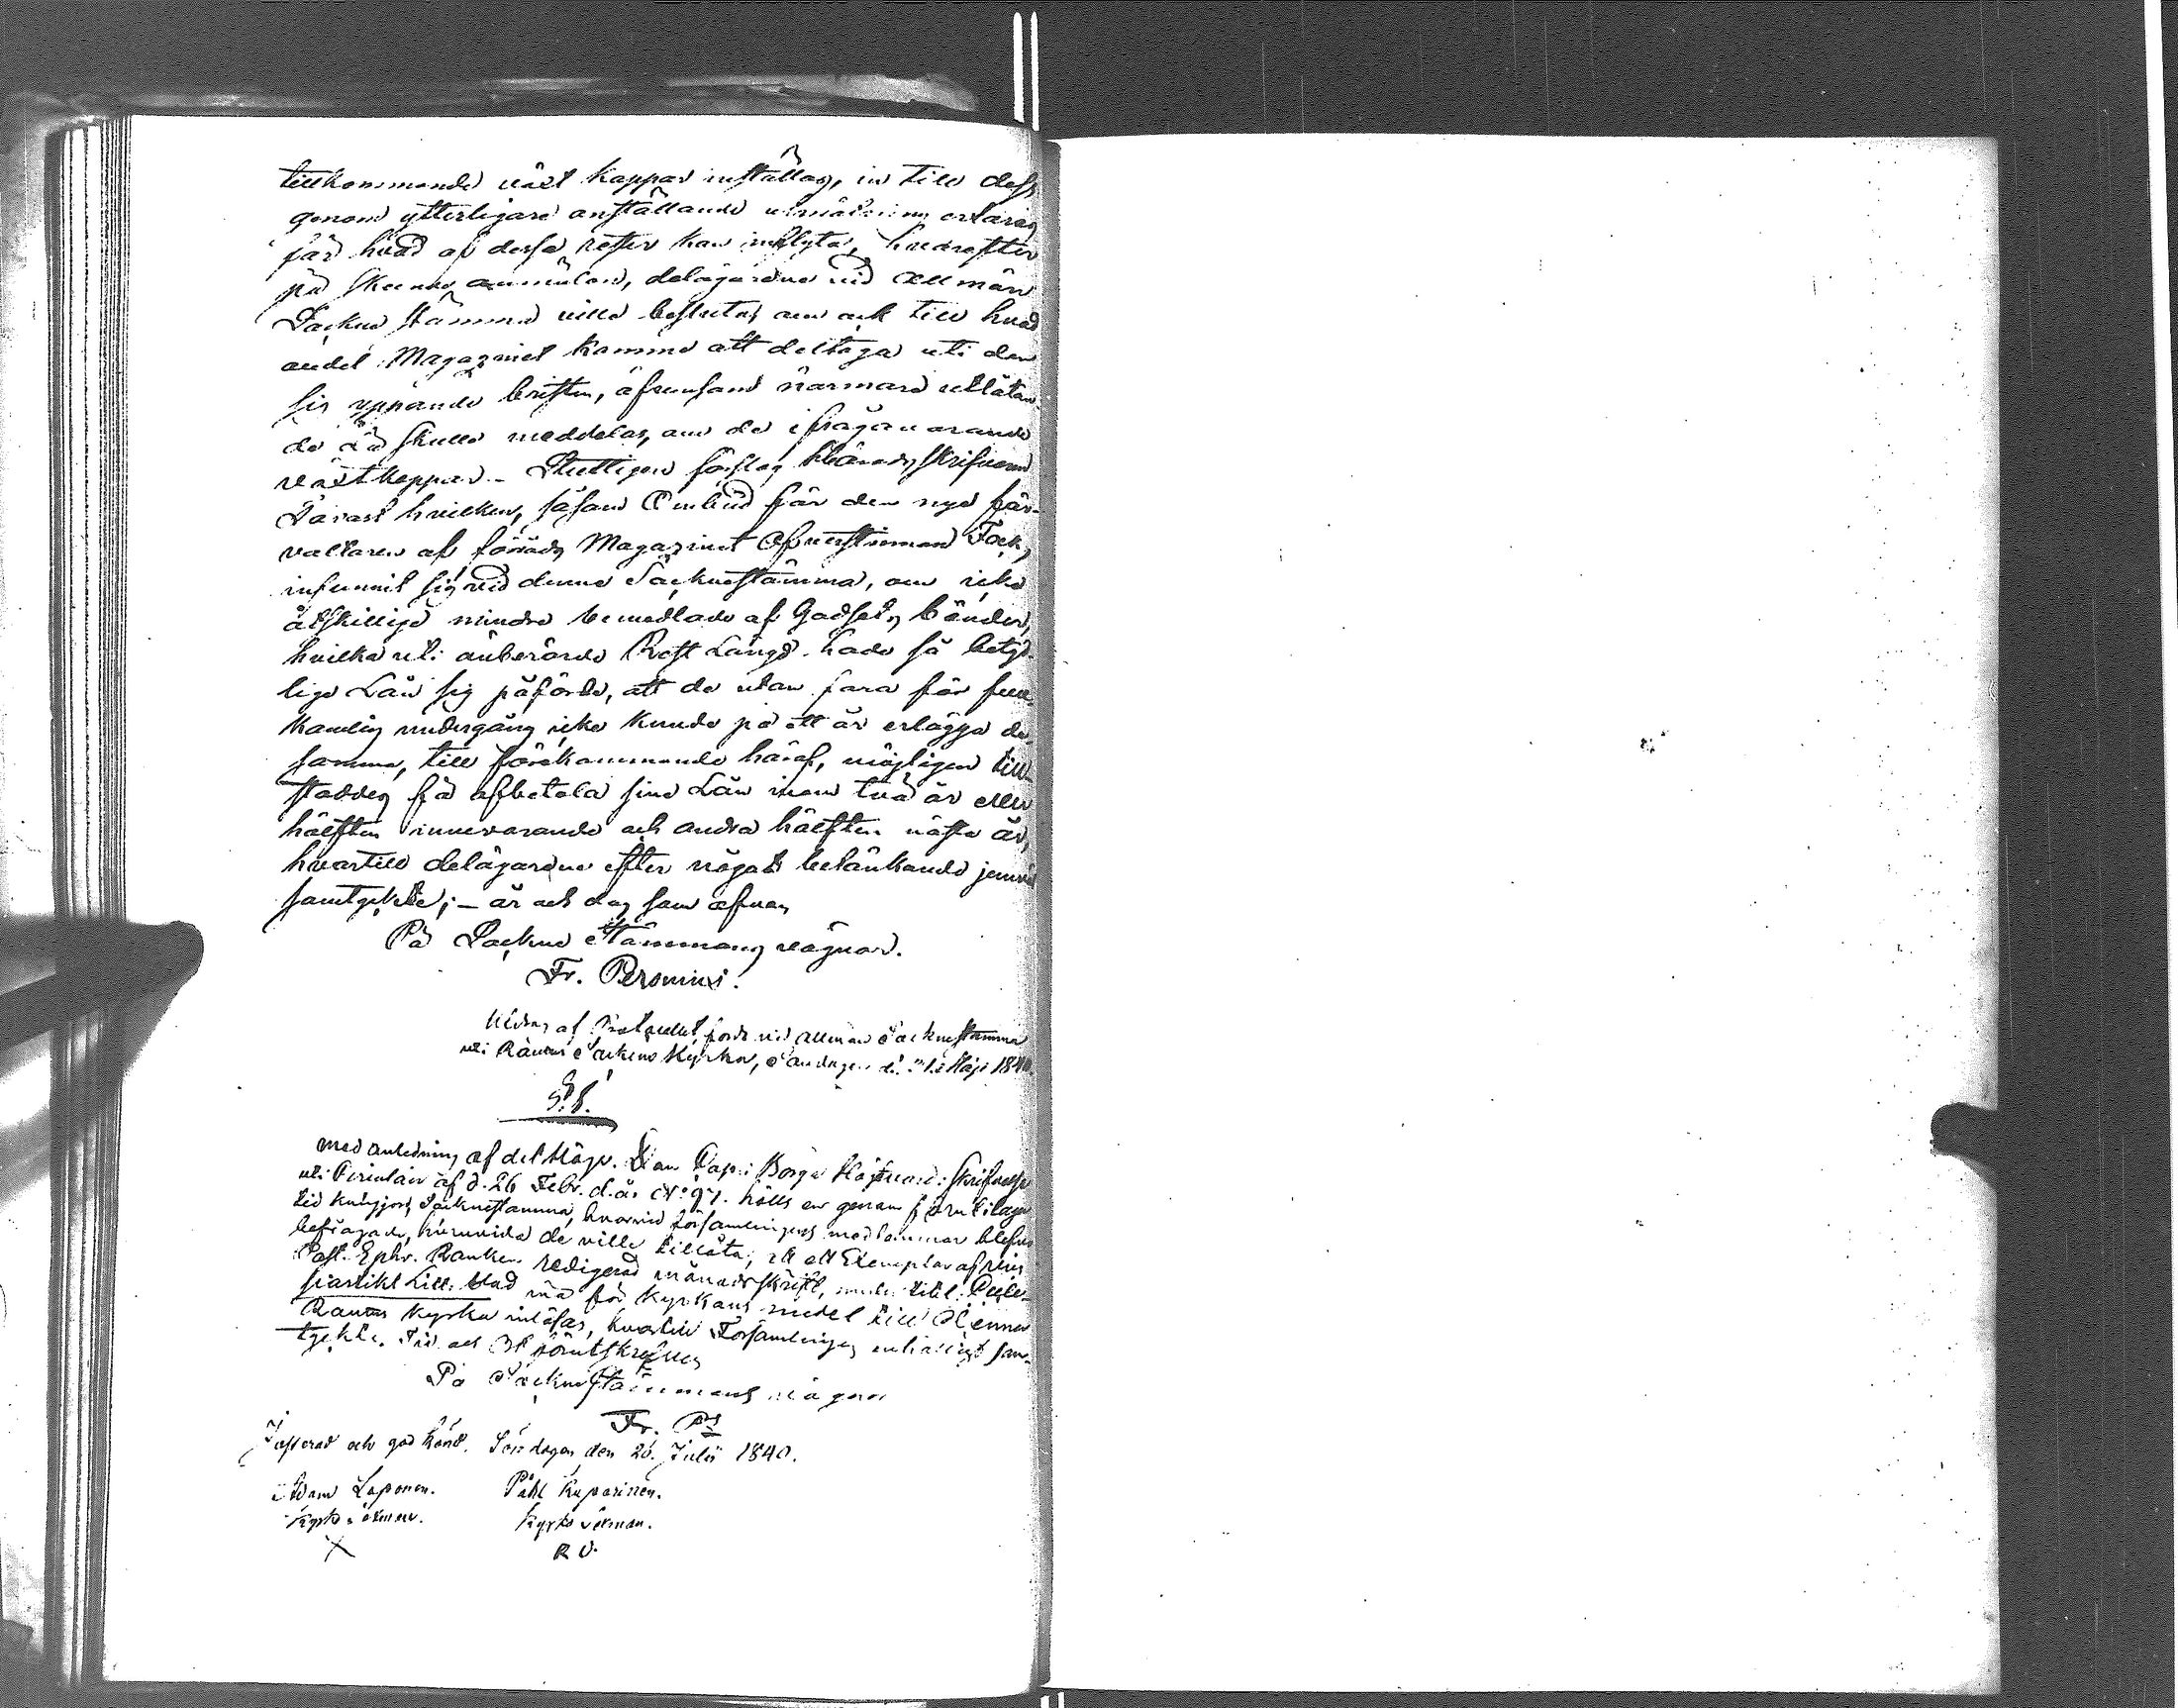 tillkommande växt kappar inställas, in till dess
genom ytterligare anställande utmätning erfaras
får hvad af dessa rester kan inflyta, hvarefter
på skeende anmälan, delägarene vid allmän
Sockne stämma ville besluta, om och till hvad
andel Magazinet komme att deltaga uti den
sig yppande bristen, äfvensom närmare utlåtan-
de då skulle meddelas, om de ifrågavarande
växtkappar. – Slutligen förslog Häradsskrifvaren
hvilken, såsom Ombud för den nyaför-
valtaren af förråds Magazinet Öfverstinnan Fock,
infunnit sig vid denna Sockenstämma, om icke
åtskillige mindre bemedlade af Godsets bönder,
hvilka uti åberörde Rest Längd hade så betyd-
liga Lån sig påförde, att de utan fara för full-
komlig undergång icke kunde på ett år erlägga de-
samma, till förekommande häraf, möjligen till-
staddes få afbetala sina Lån inom två år eller
hälften innevarande och andra hälften nästa år,
hvartill delägarene efter något betänkande jemväl
samtyckte; – år och dag som ofvan
På Sockne Stämmans vägnar.
Fr. Peronius.
Utdrag af Protocollet, fördt vid allmän Socknestämma
uti Rautus Sockens Kyrka, Söndagen d. Maji 1840.
§. 1.
Med anledning af det Högv. Dom Cap: i Borgå Högtvård: skrifvelse
uti Circulair af d. 26 Febr. d. år No: 97. hölls en genom förutilagen
tid kungjord Socknestämma, hvarvid församlingens medlemmar blefvo
befrågade, huruvida de ville tillåta, att ett Exemplar af
Past. Ephr. redigerad månadsskrift, under titel: Eccle-
siastikt Litt. blad må för Kyrkans medel till
Rautus Kyrka inlösas, hvartill Församlingen enhälligt sam-
tyckte. Tid och Ort förutskrefven
På Socknestämmans vägnar
Fr. Ps
Justerad och god känd. Söndagen den 26. Julii 1840.
Adam Loponen. Påhl Kuparinen.
Kyrko vårdman. Kyrko vårman.
X R V.